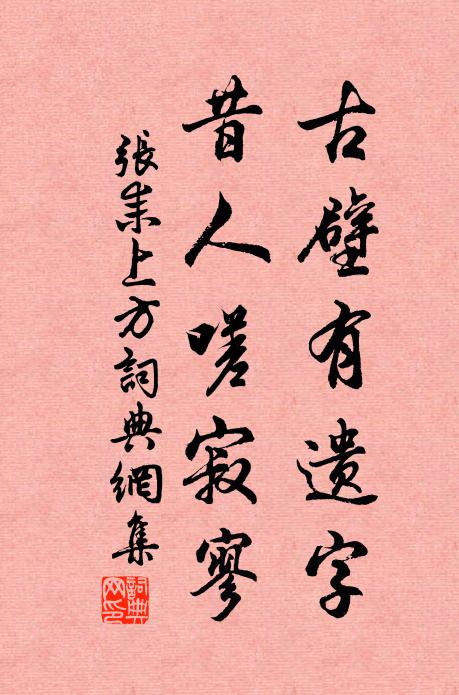 古壁有遗字
昔人嗟寂寥
張耒上方詞典網集
詞典網印